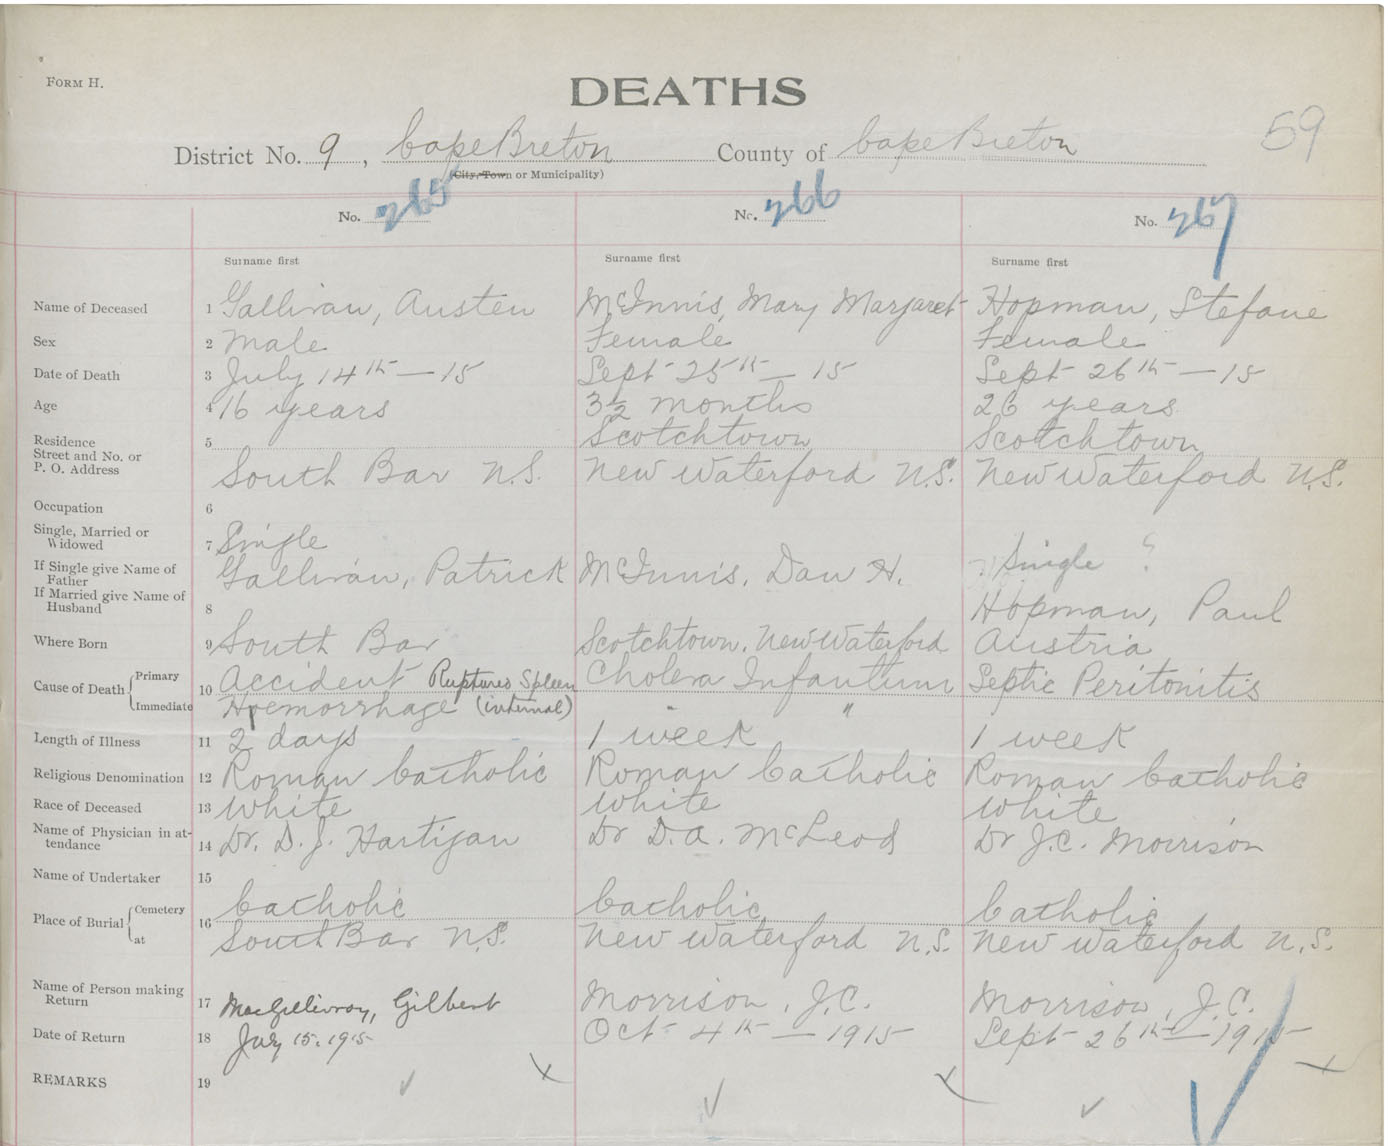 FORM H.
DEATHS
59
District No. 9, Cape Breton County of Cape Breton
(City, Town or Municipality)
No. 265 No. 266 No. 267
Surname first Surname first Surname first
Name of Deceased 1 Gallivan, Austen McInnis, Mary Margaret Hopman, Stefane
Sex 2 Male Female Female
Date of Death 3 July 14th — 15 Sept 25th — 15 Sept 26th — 15
Age 4 16 years 3½ months 26 years
Residence 5 Scotchtown Scotchtown
Street and No. or
P. O. Address South Bar N.S. New Waterford N.S. New Waterford N.S.
Occupation 6
Single, Married or
Widowed 7 Single Single ?
If Single give Name of
Father Gallivan, Patrick McInnis, Dan H.
If Married give Name of
Husband 8 Hopman, Paul
Where Born 9 South Bar Scotchtown, New Waterford Austria
Cause of Death Primary 10 Accident Ruptured Spleen Cholera Infantum Septic Peritonitis
Immediate Haemorrhage (internal) " "
Length of Illness 11 2 days 1 week 1 week
Religious Denomination 12 Roman Catholic Roman Catholic Roman Catholic
Race of Deceased 13 White White White
Name of Physician in at-
tendance 14 Dr. D. J. Hartigan Dr D. A. McLeod Dr J. C. Morrison
Name of Undertaker 15
Place of Burial Cemetery 16 Catholic Catholic Catholic
at South Bar N.S. New Waterford N.S. New Waterford N.S.
Name of Person making
Return 17 MacGillivray, Gilbert Morrison, J.C. Morrison, J.C.
Date of Return 18 July 15. 1915 Oct 4th — 1915 Sept 26th — 1915
REMARKS 19